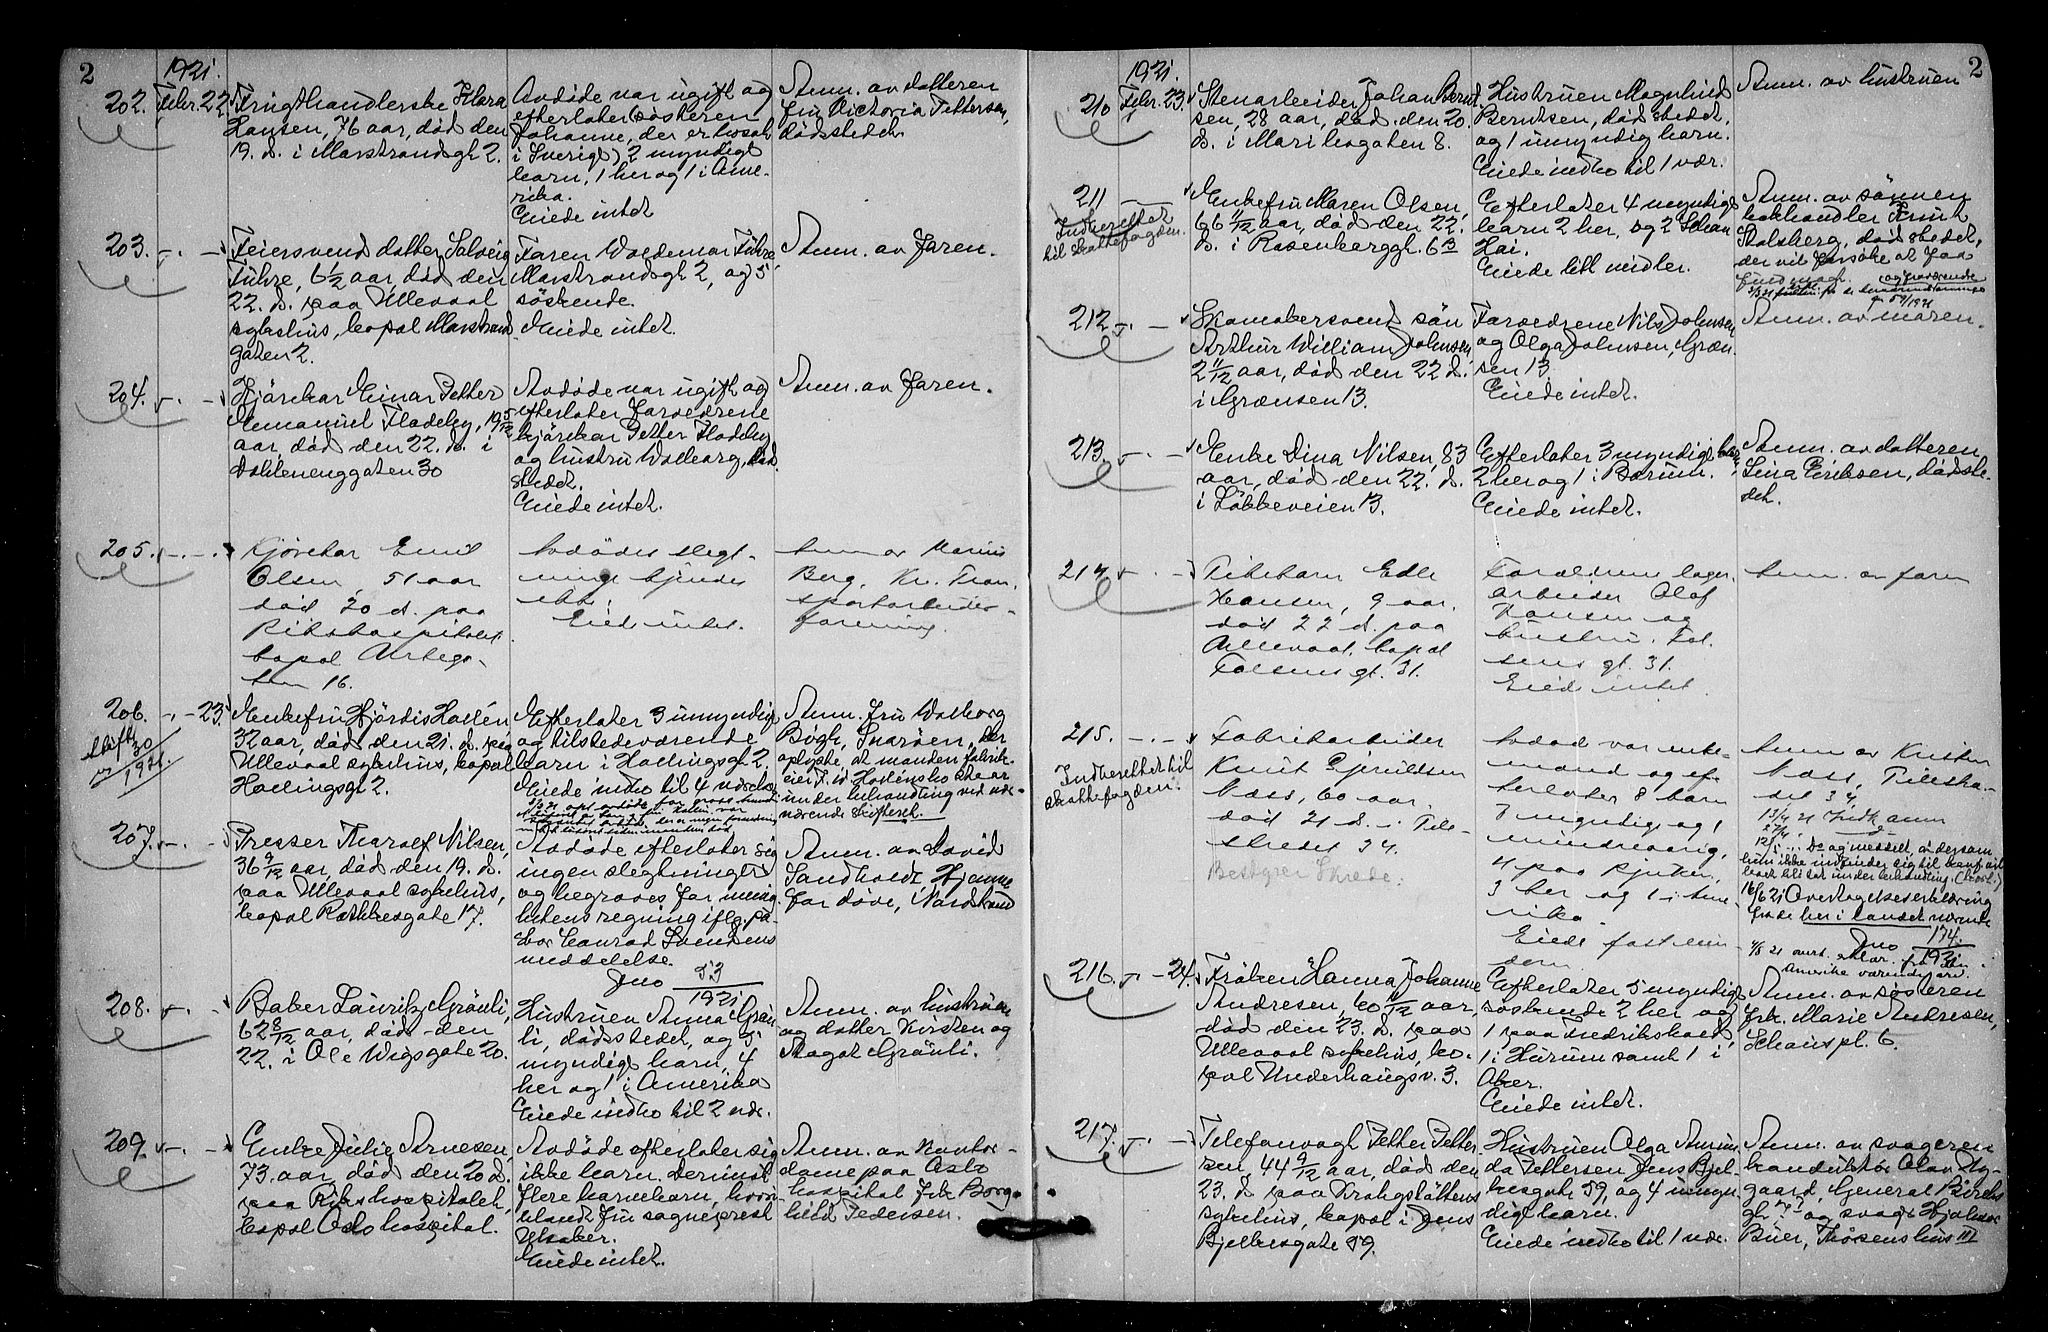 2
1921.
202. Febr. 22.
Frugthandlerske Klara
Hansen, 76 aar, død den
19. d. i Marstrandsgt 2.
Avdöde var ugift og
efterlater søsteren
Johanne, der er bosat
i Sverige, 2 myndige
barn, 1 her og 1 i Ame-
rika.
Eiede intet
Anm. av datteren
fru Victoria Pettersen,
dödsstedet.
203.
Feiersvend datter Solveig
Fuhre, 6 1/2 aar, død den
22. d. paa Ullevaal
sykehus, bopæl Marstrand
gaten 2.
Faren Waldemar Fuhre
Marstrandsgt 2, og 5
söskende.
Eiede intet.
Anm. av faren.
204.
Hjörekar Einar Petter
Emanuel Fladeby, 19 5/12
aar, død den 22. d. i
Dælenenggaten 30
Avdöde var ugift og
efterlater forældrene
kjörekar Petter Fladeby
og hustru Walborg, död
stedet.
Eiede intet.
Anm. av faren.
205.
Kjørekar Emil
Olsen, 51 aar
død 20 d. paa
Rikshospitalet
bopæl
16.
Avdødes slegt-
ninge kjendes
ikke.
Eied intet.
Anm av Marius
Berg, Kr. Tran
sportarbeider-
forening.
206. 23.
Skifte 30
1921.
Enkefru Hjördis Hallén
32 aar, død den 21. d. paa
Ullevaal sykehus, bopæl
Hallingsgt 2.
Efterlater 3 umyndige
og tilstedeværende
barn i Hallingsgt 2.
Eiede indbo til 4 værelser
Anm. fru Walborg
Bögh, Snarøen, der
oplyste, at manden fabrik-
eier
under behandling ved nær-
værende skifteret.
207.
Presser Tharalf Nilsen,
36 9/12 aar, død den 19. d.
paa Ullevaal sykehus,
bopæl Rathkesgate 17.
Avdöde efterlater sig
ingen slegtninger
og begraves for menig-
hetens regning iflg. pa-
stor Conrad Svendsens
meddelelse.
Jno 53
1921
Anm. av David
Sandholdt, Hjemme
for døve, Nordstrand
208.
Baker Lauritz Grönli,
62 8/12 aar, död den
22. i Ole Wigsgate 20.
Hustruen Anna Grön
li, dödsstedet, og 5
myndige barn, 4
her og 1 i Amerika
Eiede indbo til 2 vær.
Anm. av hustruen
og datter Kirsten og
Aagot Grönli.
209
Enke Julie Arnesen,
73 aar, død den 20 d.
paa Rikshospitalet,
bopæl Oslo hospital.
Avdöde efterlater sig
ikke barn. Derimot
flere barnebarn, hvori
blandt fru sogneprest
Ulsaker.
Eiede intet.
Anm. av kontor-
dame paa Oslo
hospital frk Borg-
hild Pedersen.
1921.
2
210 Febr. 23
Stenarbeider Johan Bernt
sen, 28 aar, död den 20.
d. i Maribogaten 8.
Hustruen Magnhild
Berntsen, död stedet,
og 1 umyndig barn.
Eiede indbo til 1 vær.
Anm. av hustruen
211
Indberettet
til skattefogden.
Enkefru Maren Olsen,
66 11/12 aar, död den 22.
d. i Rosenborggt. 6 B
Efterlater 4 myndige
barn 2 her, og 2 Schan
Hai.
Eiede litt midler.
Anm. av sönnen
bokhandler
Stolsberg, död stedet,
der vil forsöke at faa
212
Skomakersvend sön
Arthur William Johnsen
2 11/12 aar, død den 22 d.
i Grænsen 13.
Forældrene Nils Johnsen
og Olga Johnsen, Græn
sen 13
Eiede intet.
Anm. av moren.
213.
Enke Dina Nilsen, 83
aar, död den 22. d.
i Løkkeveien 13.
Efterlater 3 myndige barn
2 her og 1 i Bærum.
Eiede intet.
Anm. av datteren
Lina Eriksen, dödsste-
det.
214
Pikebarn Edle
Hansen, 9 aar.
død 22 d. paa
Ullevaal, bopæl
Falsensgt. 31.
Forældrene lager-
arbeider Olaf
Hansen og
hustru. Fal
sens gt. 31.
Eiede intet.
Anm. av faren
215.
Indberettet til
skattefogden.
Fabrikarbeider
Knut Gjerulldsen
Næss, 60 aar.
død 21 d. i Pile-
stredet 34.
Avdød var enke-
mand og ef-
terlater 8 barn
7 myndige og 1
mindreaarig,
4 paa Rjukan,
3 her og 1 i Ame
rika
Eiede fast eien
dom
Anm av Kristen
Næss, Pilestræ-
det 34,
13/4 21 Indk anm
27/4
12/5 Do og meddelt, at dersom
han ikke indfinder sig til
boet bli tat under behandling
16/6 21 Overtagelseserklæring
fra de her i landet værende
Jno 174.
1921.
Amerika værende arv.
216. 24.
Fröken Hanna Johanne
Andresen, 60 11/12 aar,
död den 23. d. paa
Ullevaal sykehus, bo-
pæl Underhaugsv. 3.
Efterlater 5 myndige
söskende 2 her og
1 paa Fredrikshald,
1 i Hurum samt 1 i
Aker.
Eiede intet.
Anm. av søsteren
frk. Marie Andresen,
Schous pl. 6.
217.
Telefonvagt Petter Petter
sen, 44 9/12 aar, död den
23. d. paa Krohgstöttens
sykehus, bopæl i Jens
Bjelkesgate 59.
Hustruen Olga Amun
da Pettersen Jens Bjel
kesgate 59, og 4 umyn
dige barn.
Eiede indbo til 1 vær.
Anm. av svogeren
konduktör Olav Ny-
gaard, General Birchs
gt og svoger Hjalmar
Buer, Thosens hus III